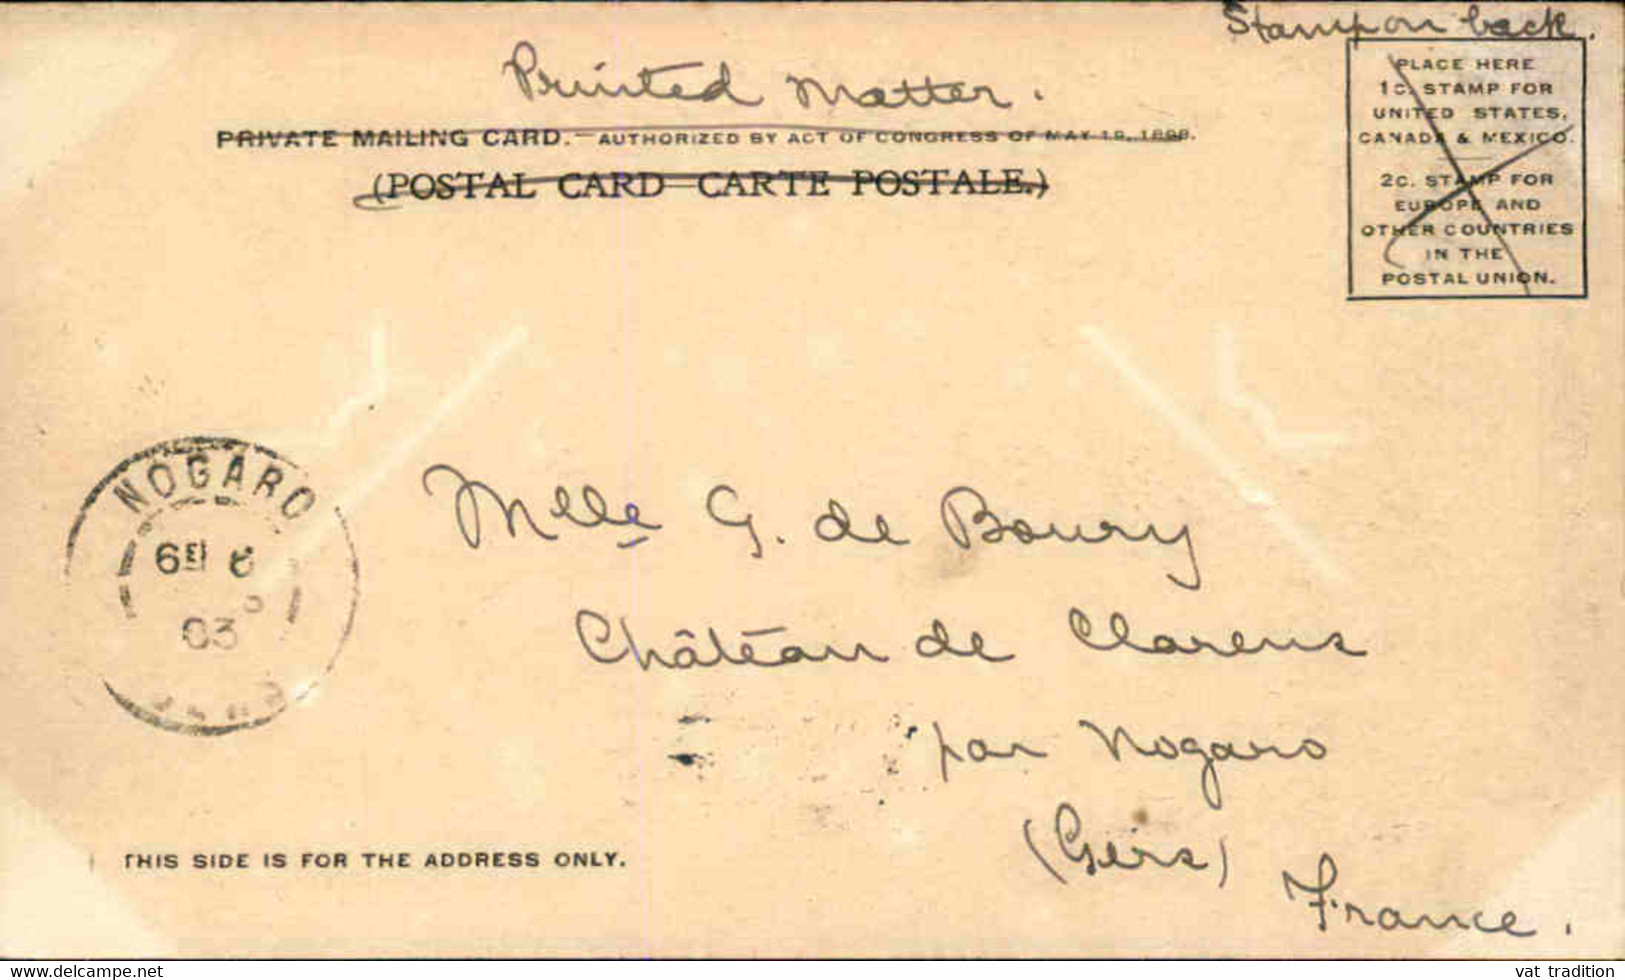 Stamp on back.
Printed Matter.
PRIVATE MAILING CARD.—AUTHORIZED BY ACT OF CONGRESS OF MAY 19, 1898.
(POSTAL CARD CARTE POSTALE.)
PLACE HERE
1C. STAMP FOR
UNITED STATES,
CANADA & MEXICO.
2C. STAMP FOR
EUROPE AND
OTHER COUNTRIES
IN THE
POSTAL UNION.
NOGARO
6E 6
03
GERS
Mlle G. de Boury
Château de Clarens
par Nogaro
(Gers)
France.
THIS SIDE IS FOR THE ADDRESS ONLY.
www.delcampe.net
vat_tradition